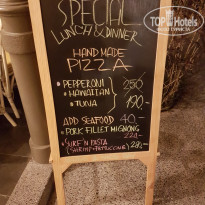 SPECIAL
LUNCH & DINNER
HAND MADE
PIZZA
• PEPPERONI 250
• HAWAIIAN
• TUNA 190.-
ADD SEAFOOD 40.-
• PORK FILLET MIGNONG
220.-
• SURF'N PASTA
(SHRIMP+FETTUCCINE) 280.-
TOP Hotels